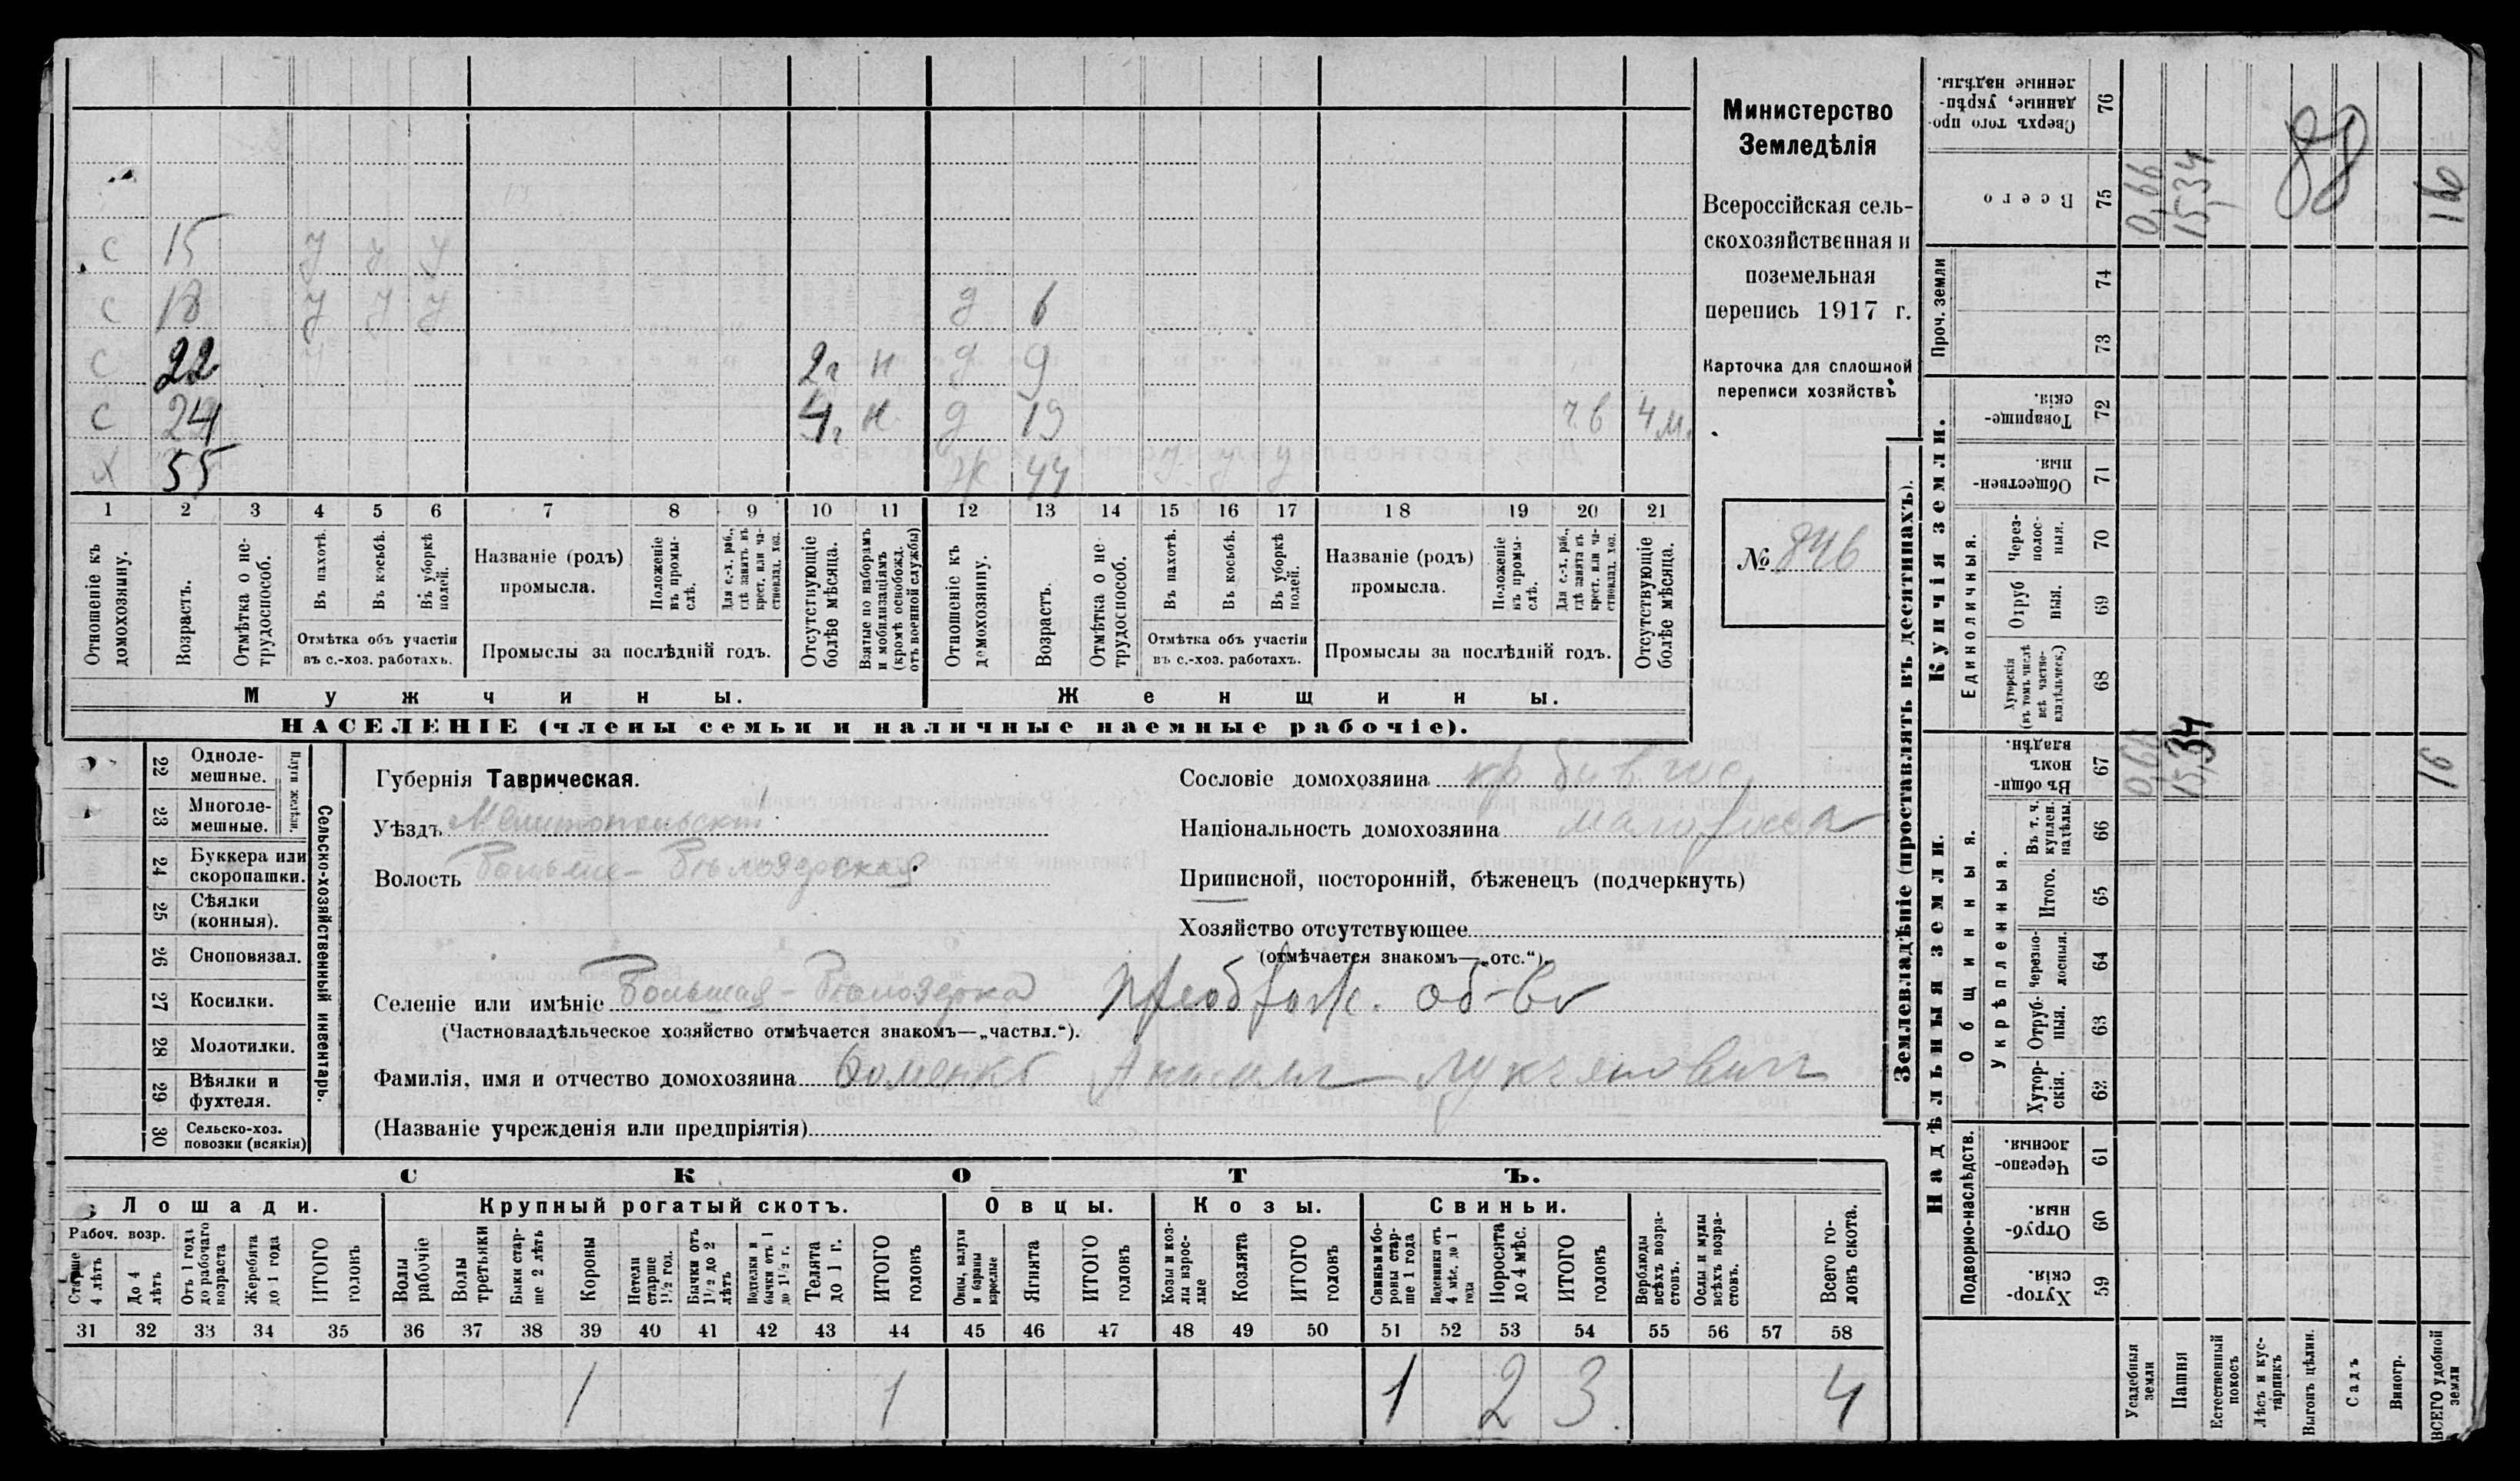 Министерство
Земледѣлія
Всероссійская сель-
скохозяйственная и
поземельная
перепись 1917 г.
Карточка для сплошной
переписи хозяйствъ
№ 846
с 15 у у у
с 18 у у у д 6
с 22 2 г н д 9
с 24 4 г н д 19 4 м.
х 55 ж 44 у у у
1 2 3 4 5 6 7 8 9 10 11 12 13 14 15 16 17 18 19 20 21
Отношеніе къ домохозяину.
Возрастъ.
Отмѣтка о не-трудоспособ.
Въ пахотѣ.
Въ косьбѣ.
Въ уборкѣ полей.
Отмѣтка объ участіи
въ с.-хоз. работахъ.
Названіе (родъ)
промысла.
Положеніе въ промы-слѣ.
Для с.-х. раб., гдѣ занятъ въ крест. или ча-стновлад. хоз.
Промыслы за послѣдній годъ.
Отсутствующіе болѣе мѣсяца.
Взятые по наборамъ и мобилизаціямъ (кромѣ освобожд. отъ военной службы)
Отношеніе къ домохозяину.
Возрастъ.
Отмѣтка о не-трудоспособ.
Въ пахотѣ.
Въ косьбѣ.
Въ уборкѣ полей.
Отмѣтка объ участіи
въ с.-хоз. работахъ.
Названіе (родъ)
промысла.
Положеніе въ промы-слѣ.
Для с.-х. раб., гдѣ занятъ въ крест. или ча-стновлад. хоз.
Промыслы за послѣдній годъ.
Отсутствующіе болѣе мѣсяца.
Мужчины.
Женщины.
НАСЕЛЕНІЕ (члены семьи и наличные наемные рабочіе).
Сельско-хозяйственный инвентарь.
Плуги желѣзн.
22 Одноле-мешные.
23 Многоле-мешные.
24 Буккера или скоропашки.
25 Сѣялки (конныя).
26 Сноповязал.
27 Косилки.
28 Молотилки.
29 Вѣялки и фухтеля.
30 Сельско-хоз. повозки (всякія)
Губернія Таврическая.
Уѣздъ Мелитопольскій
Волость Больше-Бѣлозерская
Сословіе домохозяина кр.
Національность домохозяина малоросса
Приписной, посторонній, бѣженецъ (подчеркнуть)
Хозяйство отсутствующее
(отмѣчается знакомъ—„отс.“).
Селеніе или имѣніе Большая-Бѣлозерка Преображ. об-во
(Частновладѣльческое хозяйство отмѣчается знакомъ—„частвл.“).
Фамилія, имя и отчество домохозяина Лукьяновичъ
(Названіе учрежденія или предпріятія)
СКОТЪ.
Лошади. Крупный рогатый скотъ. Овцы. Козы. Свиньи.
Рабоч. возр.
Старше 4 лѣтъ
До 4 лѣтъ
Отъ 1 года до рабочаго возраста
Жеребята до 1 года
ИТОГО головъ
Волы рабочіе
Волы третьяки
Быки стар-ше 2 лѣтъ
Коровы
Нетели старше 1½ год.
Бычки отъ 1½ до 2 лѣтъ
Подтелки и бычки отъ 1 до 1½ г.
Телята до 1 г.
ИТОГО головъ
Овцы, валухи и бараны взрослые
Ягнята
ИТОГО головъ
Козы и коз-лы взрос-лые
Козлята
ИТОГО головъ
Свиньи и бо-ровы стар-ше 1 года
Подсвинки отъ 4 мѣс. до 1 года
Поросята до 4 мѣс.
ИТОГО головъ
Верблюды всѣхъ возра-стовъ.
Ослы и мулы всѣхъ возра-стовъ.
Всего го-ловъ скота.
31 32 33 34 35 36 37 38 39 40 41 42 43 44 45 46 47 48 49 50 51 52 53 54 55 56 57 58
1 1 1 2 3 4
Землевладѣніе (проставлять въ десятинахъ).
Надѣльныя земли.
Купчія земли.
Проч. земли
Подворно-наслѣдств.
Общинныя.
Укрѣпленныя.
Единоличныя.
Хутор-скія. 59
Отруб-ныя. 60
Черезпо-лосныя. 61
Хутор-скія. 62
Отруб-ныя. 63
черезпо-лосныя. 64
Итого. 65
Въ т. ч. куплен. надѣлы. 66
Въ общин-номъ владѣн. 67
Хуторскія (въ томъ числѣ всѣ частно-владѣльческ.) 68
Отрубныя. 69
Через-полос-ныя. 70
Обществен-ныя. 71
Товарище-скія. 72
73
74
Всего 75
Сверхъ того про-данные, укрѣп-ленные надѣлы. 76
Усадебныя земли
Пашня
Естественный покосъ
Лѣсъ и кус-тарникъ
Выгонъ цѣлин.
Садъ
Виногр.
ВСЕГО удобной земли
0,66 15,34 16
0,66 15,34 16
88